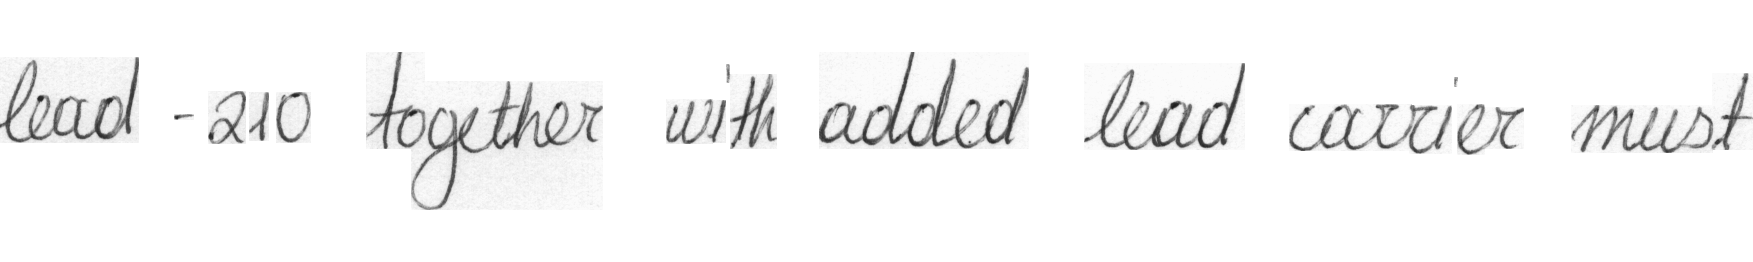 lead -210 together with added lead carrier must